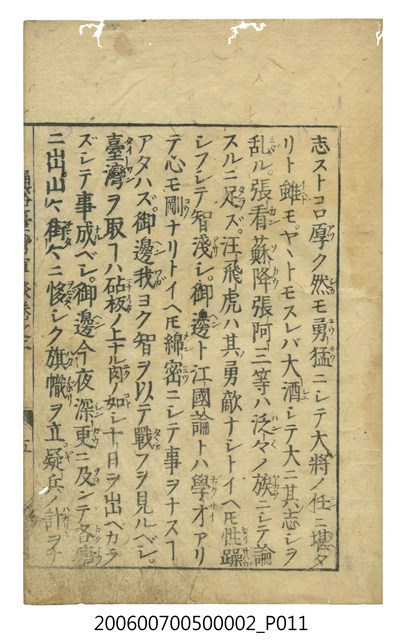 志ストコロ厚ク然モ勇猛ニシテ大將ノ任ニ堪タ
リト雖モ。ヤヽトモスレバ大酒シテ大ニ其志シヲ
乱ル。張看蘇降張阿三等ハ泛々ノ族ニシテ論
スルニ足ズ。汪飛虎ハ其勇敵ナシトイヘ𪜈性躁
シフシテ智淺シ。御邊ト江國論トハ學才アリ
テ心モ剛ナリトイヘ𪜈綿密ニシテ事ヲナスヿ
アタハズ御邊我ヨク智ヲ以テ戰フヲ見ルベシ。
臺灣ヲ取ヿハ砧板ノ上ナル肉ノ如シ十日ヲ出ベカラ
ズシテ事成ベシ。御邊今夜深更ニ及ンテ各
ニ出山々ニ悋シク旗幟ヲ立。疑兵ノ計ヲナ
五
200600700500002_P011